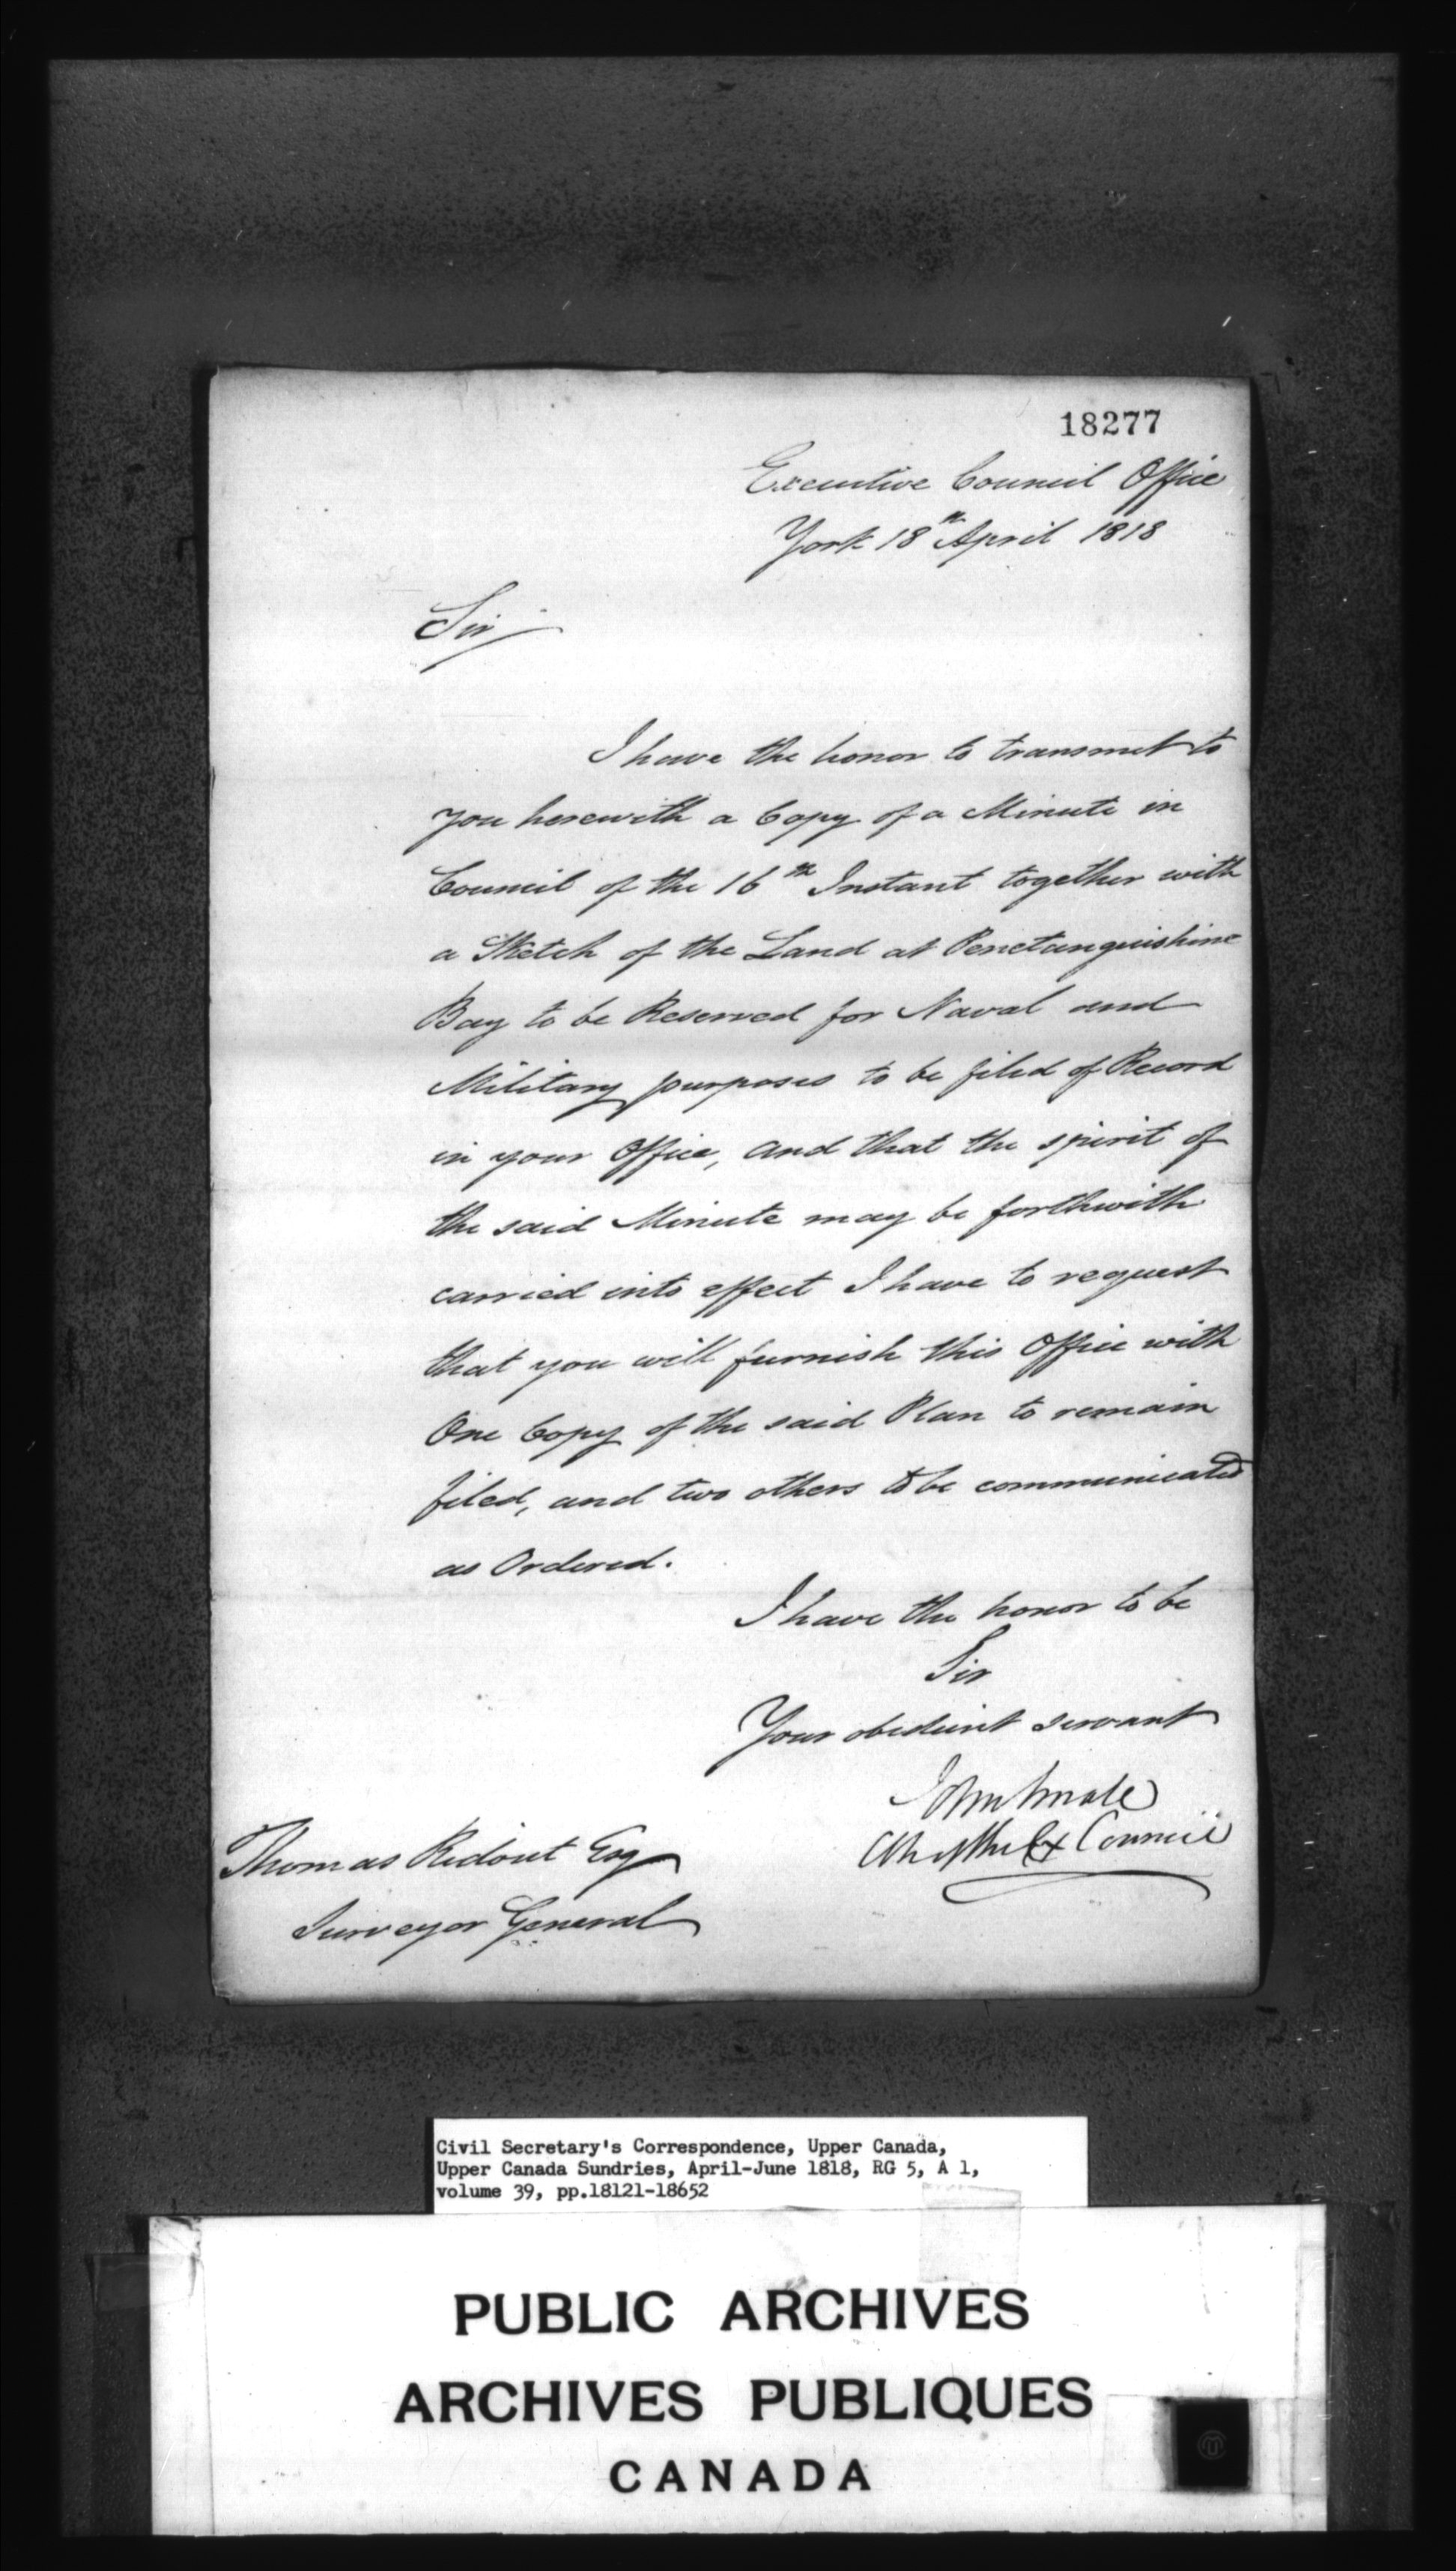 18277
Executive Council Office
York 18th April 1818
Sir
I have the honor to transmit to
you herewith a Copy of a Minute in
Council of the 16th Instant together with
a Sketch of the Land at Penetanguishine
Bay to be Reserved for Naval and
Military purposes to be filed of Record
in your Office, and that the spirit of
the said Minute may be forthwith
carried into effect I have to request
that you will furnish this Office with
One Copy of the said Plan to remain
filed, and two others to be communicated
as Ordered.
I have the honor to be
Sir
Your obedient servant
John Small
Clk of the Ex Council
Thomas Ridout Esq
Surveyor General
Civil Secretary's Correspondence, Upper Canada,
Upper Canada Sundries, April-June 1818, RG 5, A 1,
volume 39, pp.18121-18652
PUBLIC ARCHIVES
ARCHIVES PUBLIQUES
CANADA